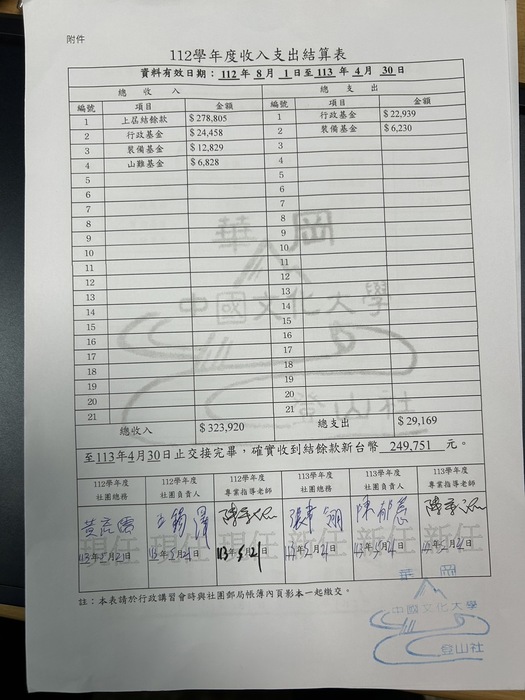 附件
112學年度收入支出結算表
資料有效日期：112 年 8 月 1 日至 113 年 4 月 30 日
總 收 入 總 支 出
編號 項目 金額 編號 項目 金額
1 上屆結餘款 $ 278,805 1 行政基金 $ 22,939
2 行政基金 $ 24,458 2 裝備基金 $ 6,230
3 裝備基金 $ 12,829 3
4 山難基金 $ 6,828 4
5 5
6 6
7 7
8 8
9 9
10 10
11 11
12 12
13 13
14 14
15 15
16 16
17 17
18 18
19 19
20 20
21 21
華岡
中國文化大學
登山社
總收入 $ 323,920 總支出 $ 29,169
至113年4月30日止交接完畢，確實收到結餘款新台幣 249,751 元。
112學年度 112學年度 112學年度 113學年度 113學年度 113學年度
社團總務 社團負責人 專業指導老師 社團總務 社團負責人 專業指導老師
現任 現任 新任 新任 新任
113年5月21日 113年5月21日 113年5月21日 113年5月21日 113年5月21日
註：本表請於行政講習會時與社團郵局帳簿內頁影本一起繳交。
華岡
中國文化大學
登山社